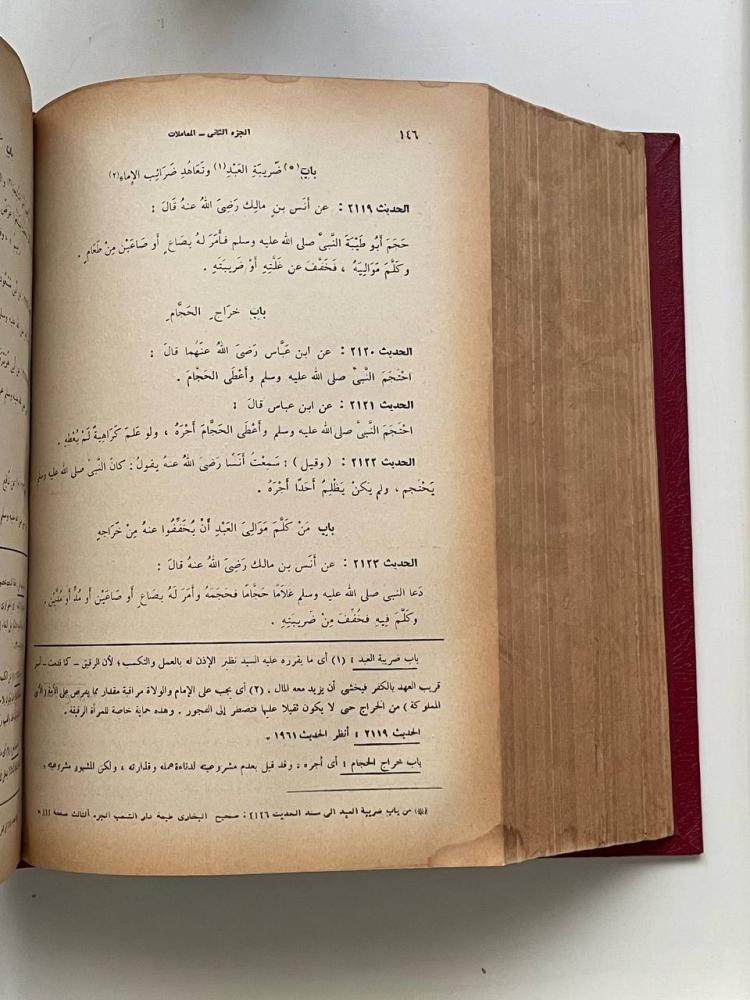 ١٤٦ الجزء الثانى – المعاملات
باب(*) ضَريبَةِ العَبْدِ(١) وتَعَاهُدِ ضَرائِبِ الإماءِ(٢)
الحديث ٢١١٩ : عن أنَس بنِ مالِك رَضِىَ اللهُ عنهُ قَالَ :
حَجَمَ أبُو طَيْبَةَ النَّبىَّ صلى الله عليه وسلم فأمَرَ لهُ بصَاعٍ أو صَاعَيْن مِنْ طَعَامٍ .
وكَلَّمَ مَوَالِيَهُ ، فَخَفَّفَ عن غَلَّتِهِ أوْ ضَريبَتِهِ .
باب خراجِ الحَجَّامِ
الحديث ٢١٢٠ : عن ابن عَبَّاس رَضِىَ اللهُ عَنْهُما قالَ :
احْتَجَمَ النَّبىُّ صلى الله عليه وسلم وأعْطَى الحَجَّامَ .
الحديث ٢١٢١ : عن ابن عباس قالَ :
احْتَجَمَ النَّبىُّ صلى الله عليه وسلم وأعْطَى الحَجَّامَ أجْرَهُ ، ولو عَلمَ كَرَاهِيةً لَمْ يُعْطِهِ .
الحديث ٢١٢٢ : ( وقيل ) : سَمِعْتُ أنَسًا رَضِىَ اللهُ عَنهُ يقولُ : كانَ النَّبىُّ صلى الله عليه وسلم
يَحْتَجم ، ولم يَكنْ يَظْلِمُ أحَدًا أجْرَهُ .
باب مَنْ كَلَّمَ مَوَالِىَ العَبْدِ أنْ يُخَفِّفُوا عنهُ مِنْ خَرَاجهِ
الحديث ٢١٢٣ : عن أنَس بن مالك رَضِىَ اللهُ عنهُ قالَ :
دَعا النبى صلى الله عليه وسلم غلَامًا حَجَّامًا فحَجَمَهُ وأمَرَ لَهُ بصَاعٍ أو صَاعَيْنِ أو مُدٍّ أو مُدَّيْنِ .
وكَلَّمَ فِيهِ فخُفِّفَ مِنْ ضَريبَتِهِ .
باب ضريبة العبد : (١) أى ما يقرره عليه السيد نظير الإذن له بالعمل والتكسب؛ لأن الرقيق –
قريب العهد بالكفر فيخشى أن يزيد معه المال . (٢) أى يجب على الإمام والولاة مراقبة مقدار مما يفرض على الأمة ( الأنثى
المملوكة ) من الخراج حتى لا يكون ثقيلا عليها فتضطر إلى الفجور . وهذه حماية خاصة للمرأة الرقيقة .
الحديث ٢١١٩ : أنظر الحديث ١٩٦١ .
باب خراج الحجام : أى أجره ، وقد قيل بعدم مشروعيته لدناءة عمله وقذارته ، ولكن المشهور مشروعيته .
(*) من باب ضريبة العبد الى سند الحديث ٢١٢٦ : صحيح البخارى طبعة دار الشعب الجزء الثالث صفحة